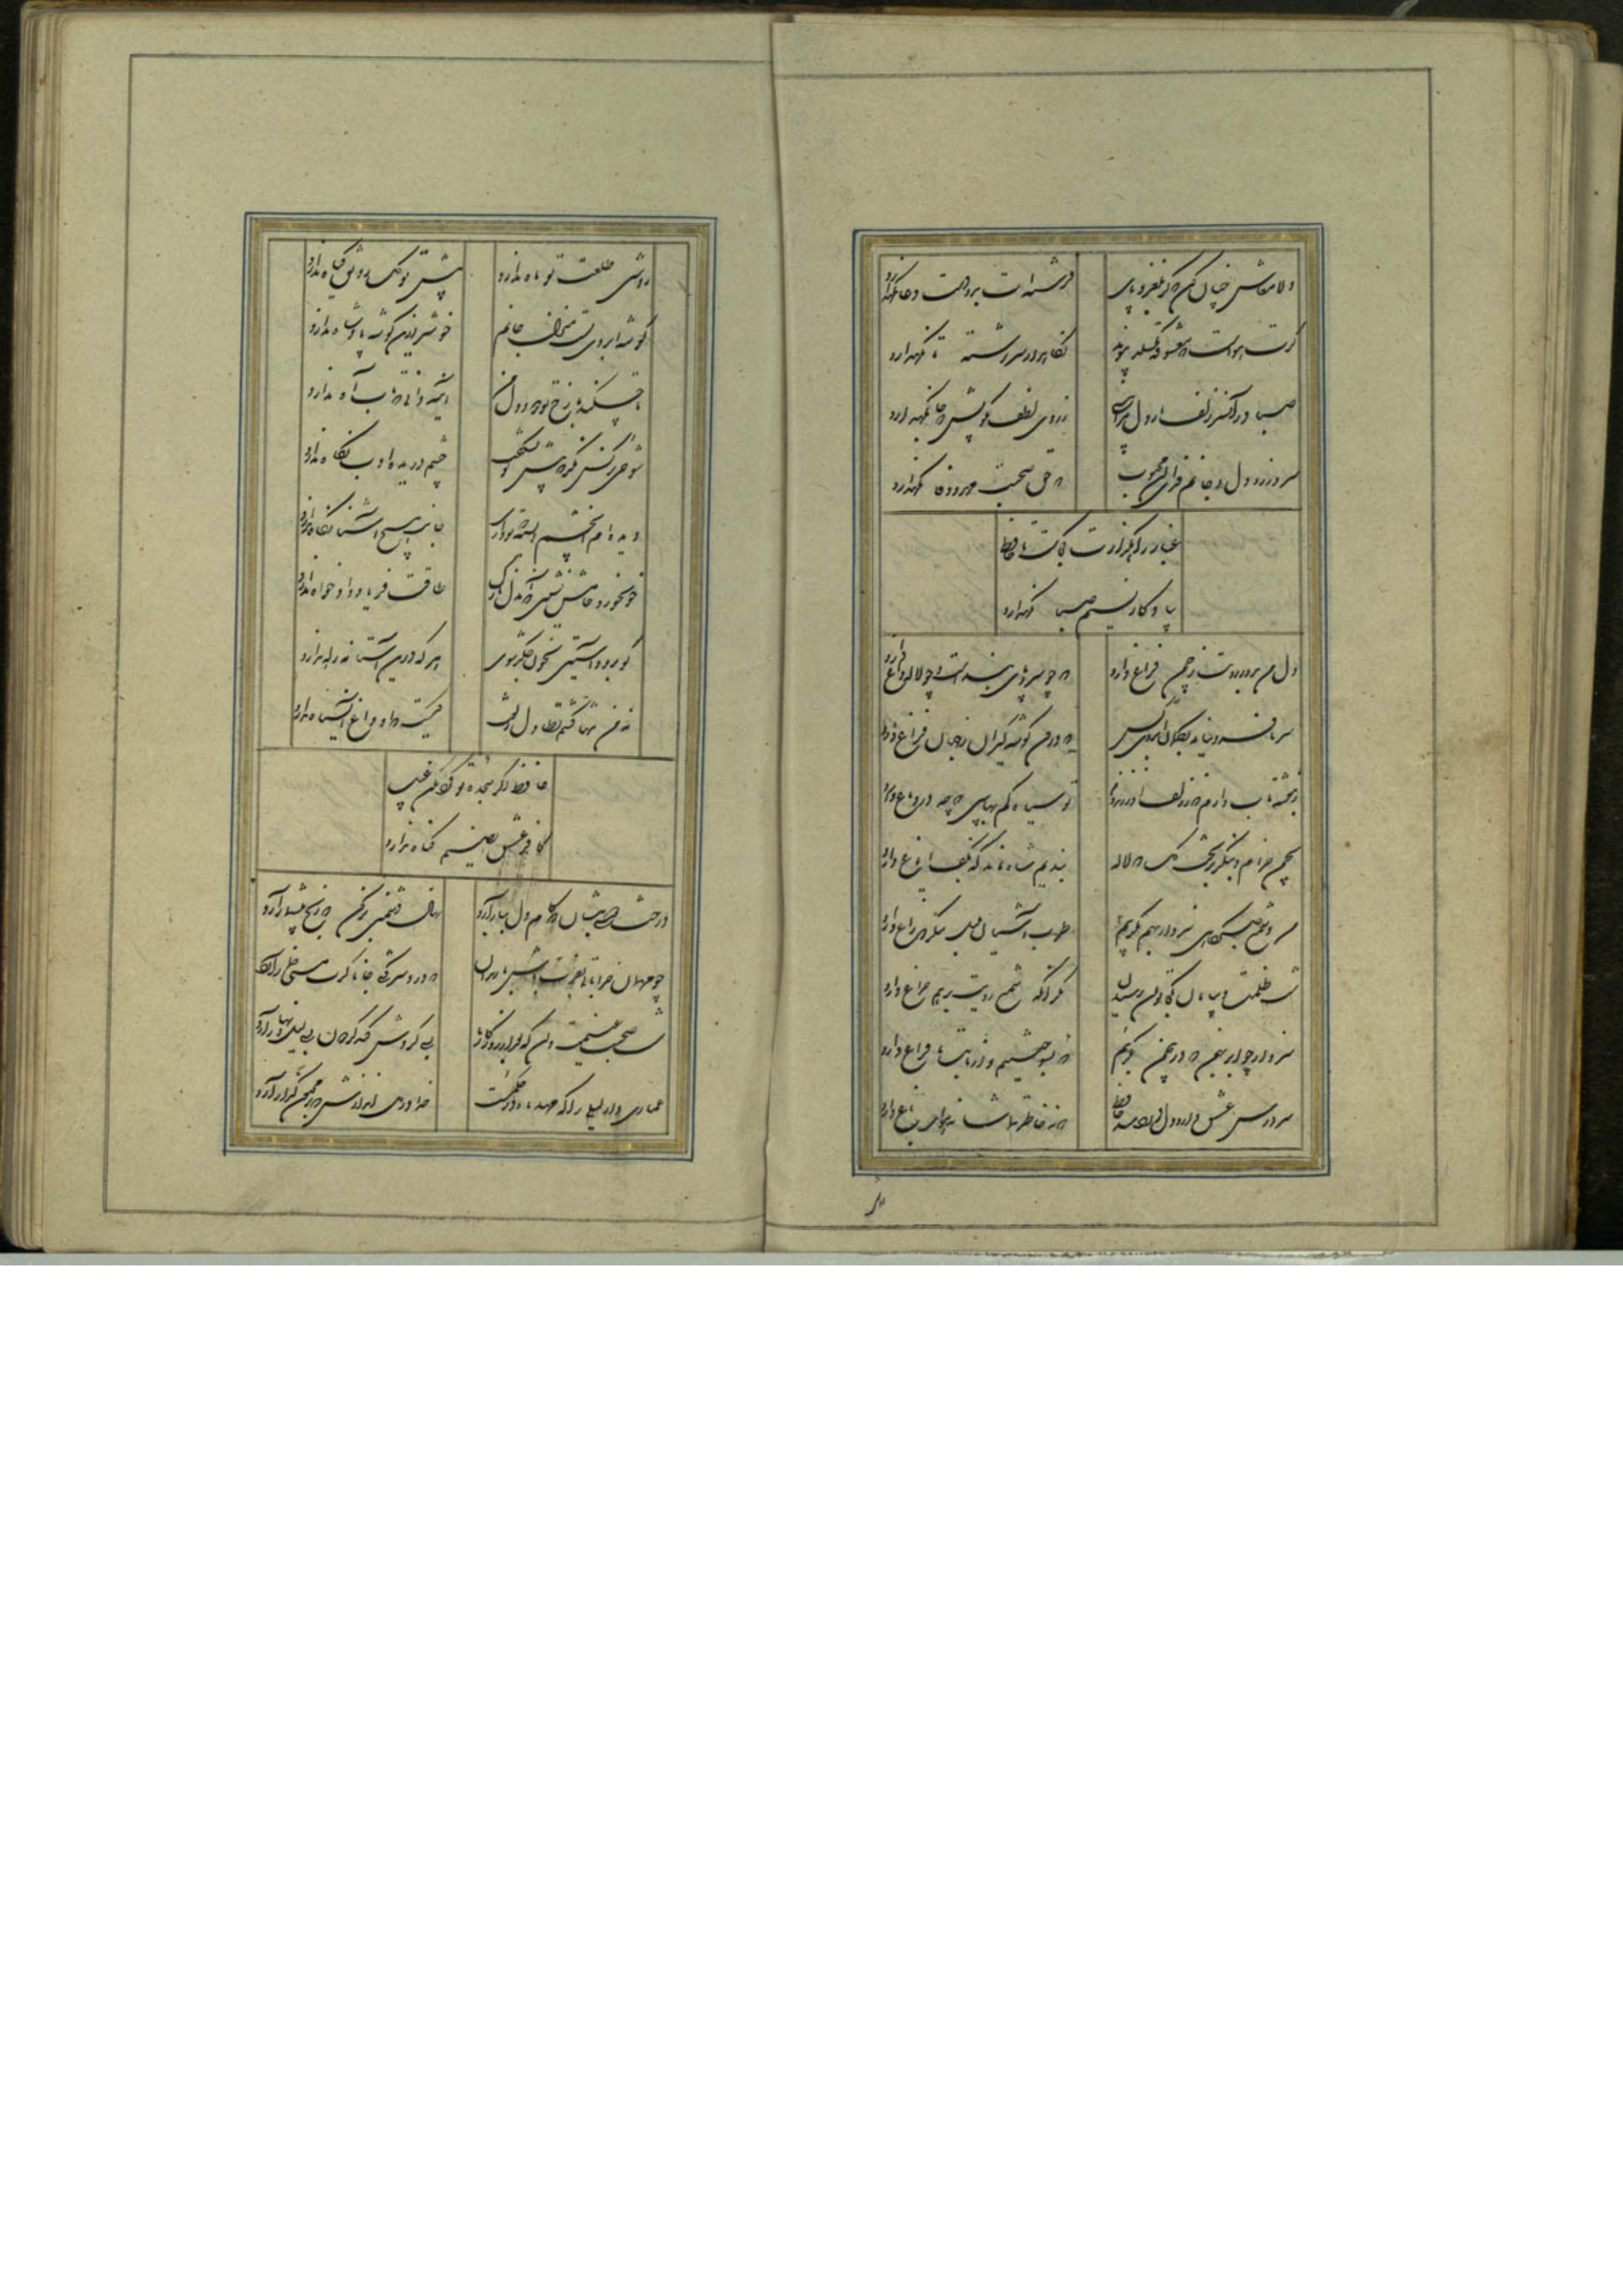 دلا معاش چنان کن که گر بلغزد پای فرشته ات بدو دست دعا نگهدارد
گرت هواست که معشوقه نگسلد پیوند نگاه دار سر رشته تا نگهدارد
صبا در آن سر زلف ار دل مرا بینی ز روی لطف بگویش که جا نگهدارد
سر و زر و دل و جانم فدای آن محبوب که حق صحبت مهر و وفا نگهدارد
غبار راهگذارت کجاست تا حافظ
بیادگار نسیم صبا نگهدارد
دل من بدور رویت ز چمن فراغ دارد که چو سرو پای بند است و چو لاله داغ دارد
سر ما فرو نیاید بکمان ابروی کس که درون گوشه گیران ز جهان فراغ دارد
ز بنفشه تاب دارم که ز زلف او زند دم تو سیاه کم بها بین که چه در دماغ دارد
بچمن خرام و بنگر بر تخت گل که لاله بندیم شاه ماند که بکف ایاغ دارد
من و شمع صبحگاهی سزد ار بهم بگرییم طرب آشیان بلبل بنگر که زاغ دارد
شب ظلمت و بیابان بکجا توان رسیدن مگر آنکه شمع رویت برهم چراغ دارد
سزد ار چو ابر بهمن که درین چمن بگریم که بسوختیم و از ما بت ما فراغ دارد
سر درس عشق دارد دل دردمند حافظ که نه خاطر تماشا نه هوای باغ دارد
روشنی طلعت تو ماه ندارد پیش تو گل رونق گیاه ندارد
گوشه ابروی تست منزل جانم خوشتر ازین گوشه پادشاه ندارد
تا چه کند با رخ تو دود دل من آینه دانی که تاب آه ندارد
شوخی نرگس نگر که پیش تو بشکفت چشم دریده ادب نگاه ندارد
دیدم آن چشم دل سیه که تو داری جانب هیچ آشنا نگاه ندارد
خون خور و خامش نشین که آن دل نازک طاقت فریاد دادخواه ندارد
گو برو و آستین بخون جگر شوی هر که درین آستانه راه ندارد
نه من تنها کشم تطاول زلفت کیست که او داغ آن سیاه ندارد
حافظ اگر سجده تو کرد مکن عیب
کافر عشق ای صنم گناه ندارد
درخت دوستی بنشان که کام دل ببار آرد نهال دشمنی برکن که رنج بیشمار آرد
چو مهمان خراباتی بعزت باش با رندان که درد سر کشی جانا گرت مستی خمار آرد
شب صحبت غنیمت دان که بعد از روزگار ما بسی گردش کند گردون بسی لیل و نهار آرد
عماری دار لیلی را که مهد ماه در حکمست خدا در دل اندازش که بر مجنون گذار آرد